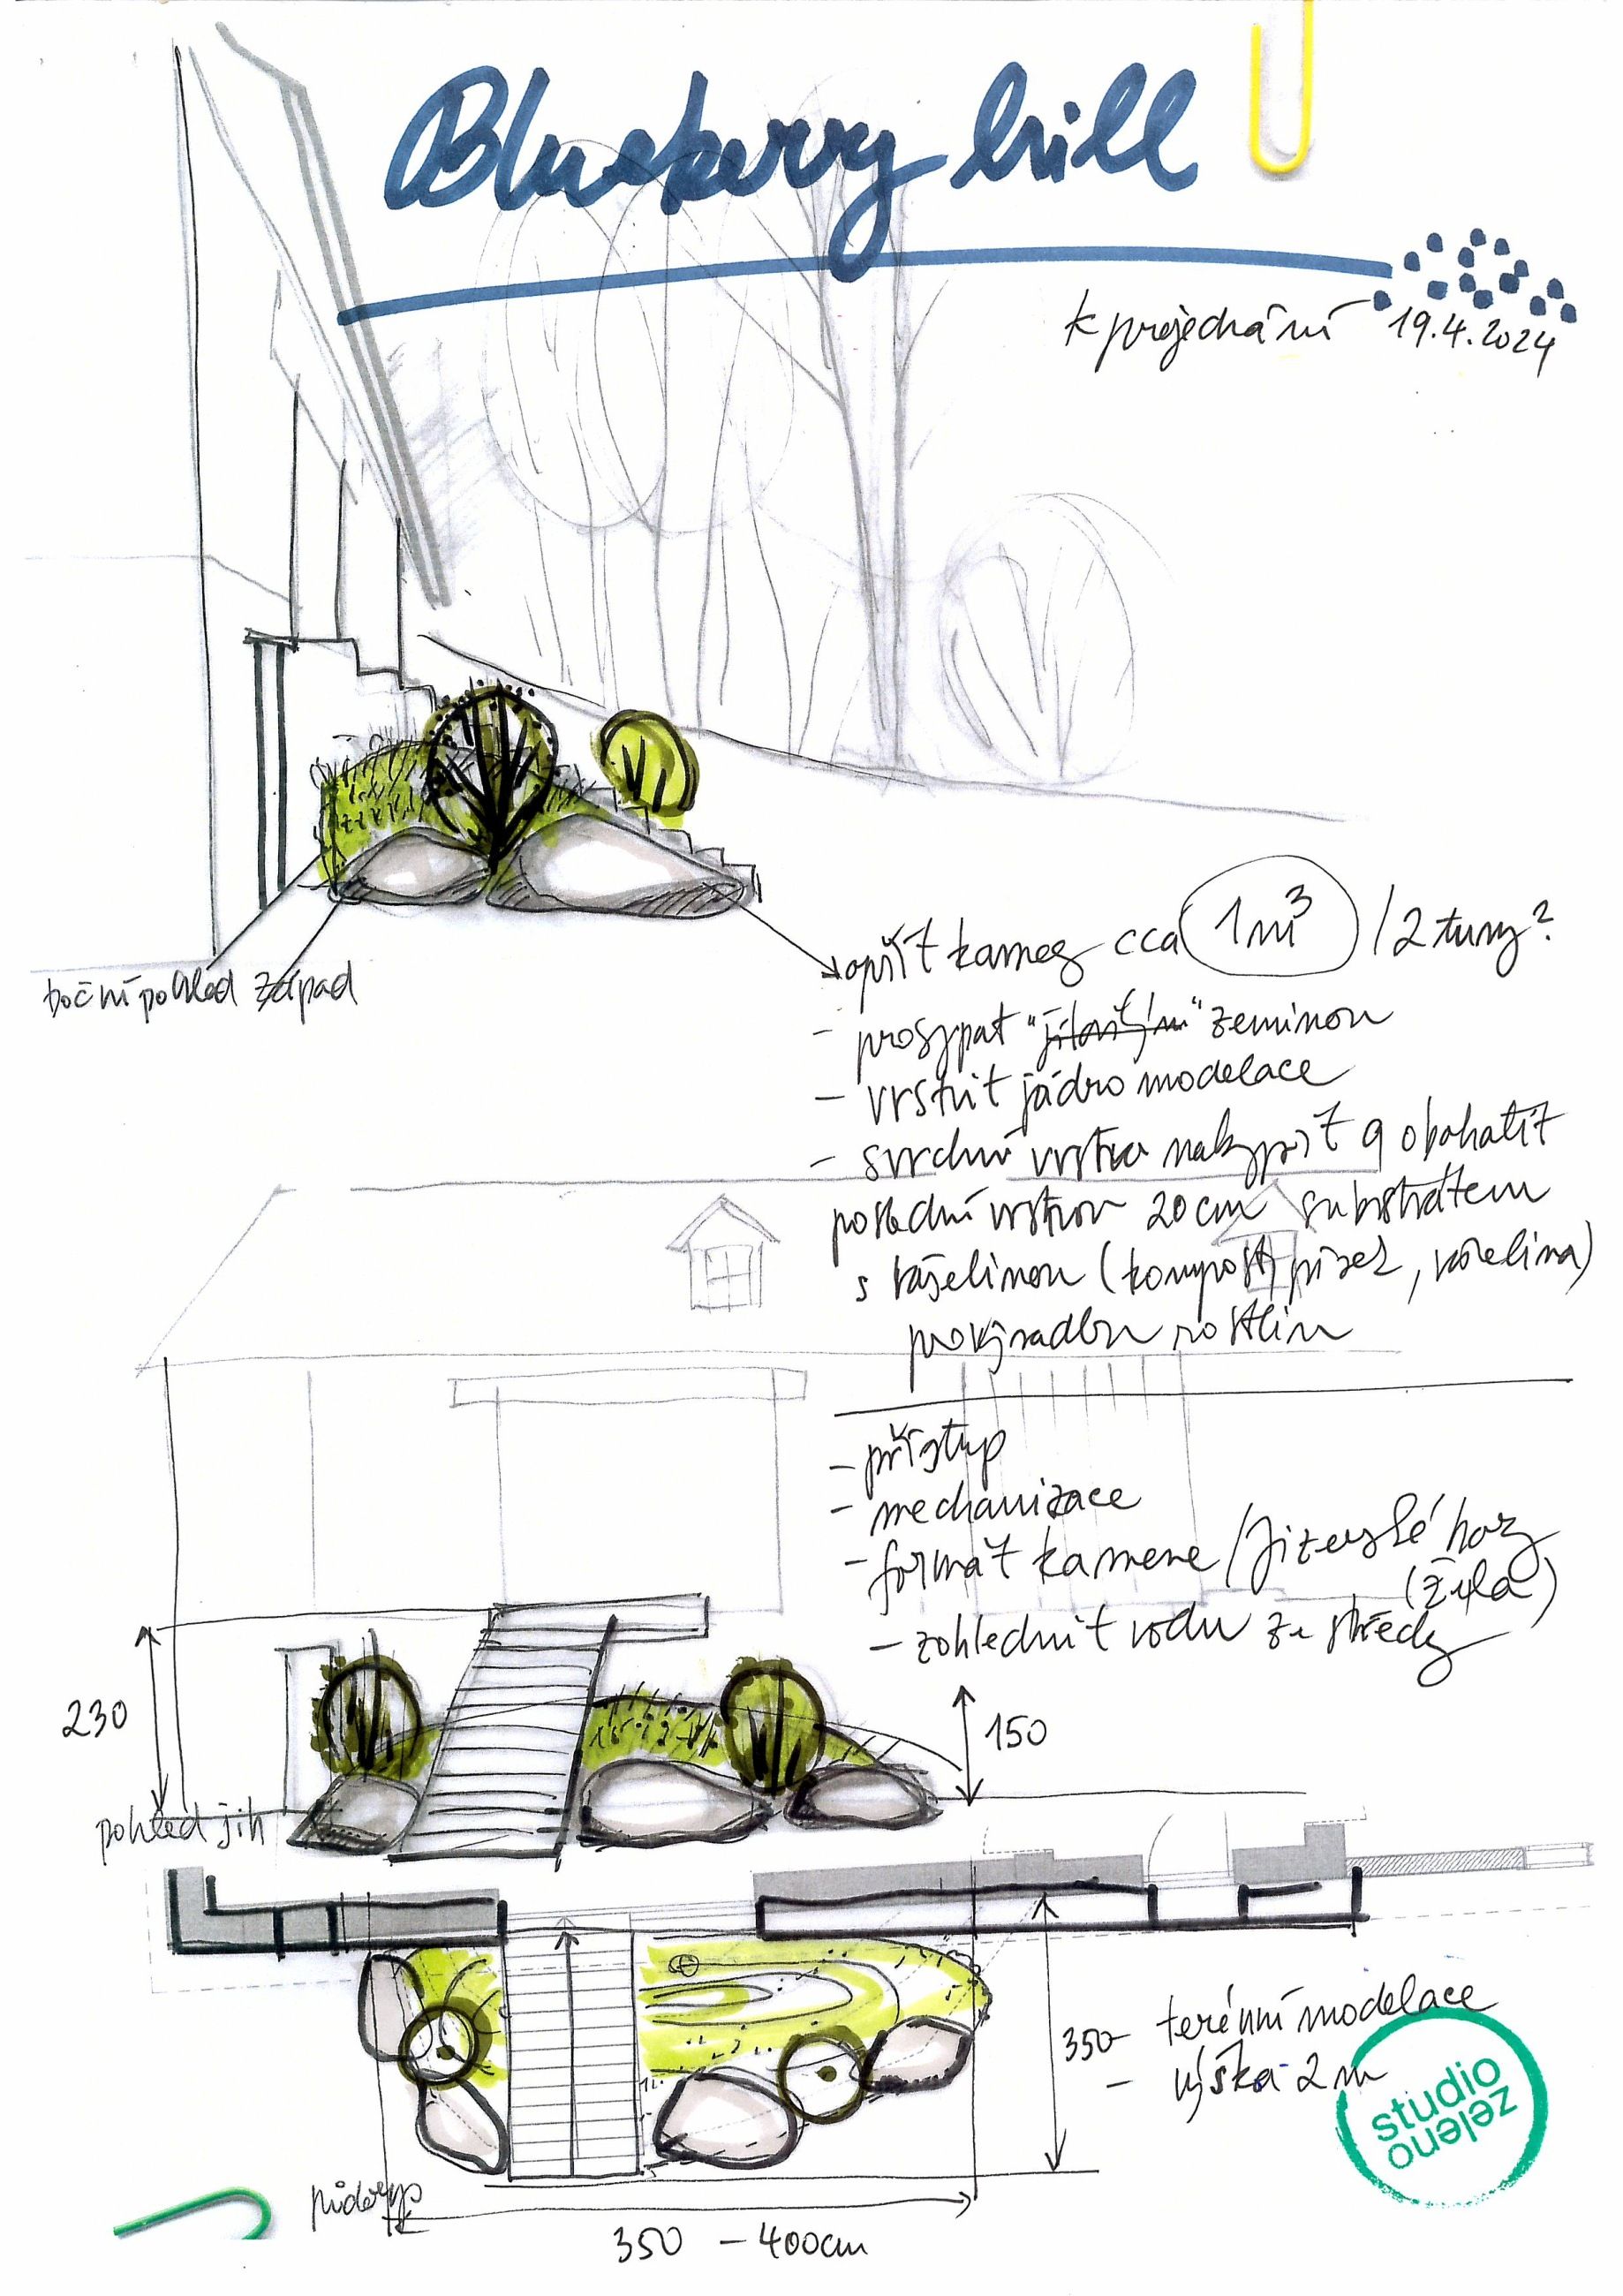 Blueberry hill
k projednání 19.4.2024
boční pohled západ
opřít kameny cca 1m³ / 2 tuny?
- prosypat "jílovitým" zeminou
- vrstvit jádro modelace
- svrchní vrstvu nakypřit a obohatit
poslední vrstvou 20cm substrátem
s rašelinou (kompost, písek, rašelina)
pro výsadbu rostlin
- přístup
- mechanizace
- formát kamene / Jizerské hory
(žula)
- zohlednit vodu ze střechy
230
150
pohled jih
350
- terénní modelace
- výška 2 m
studio
zeleno
půdorys
350 - 400cm